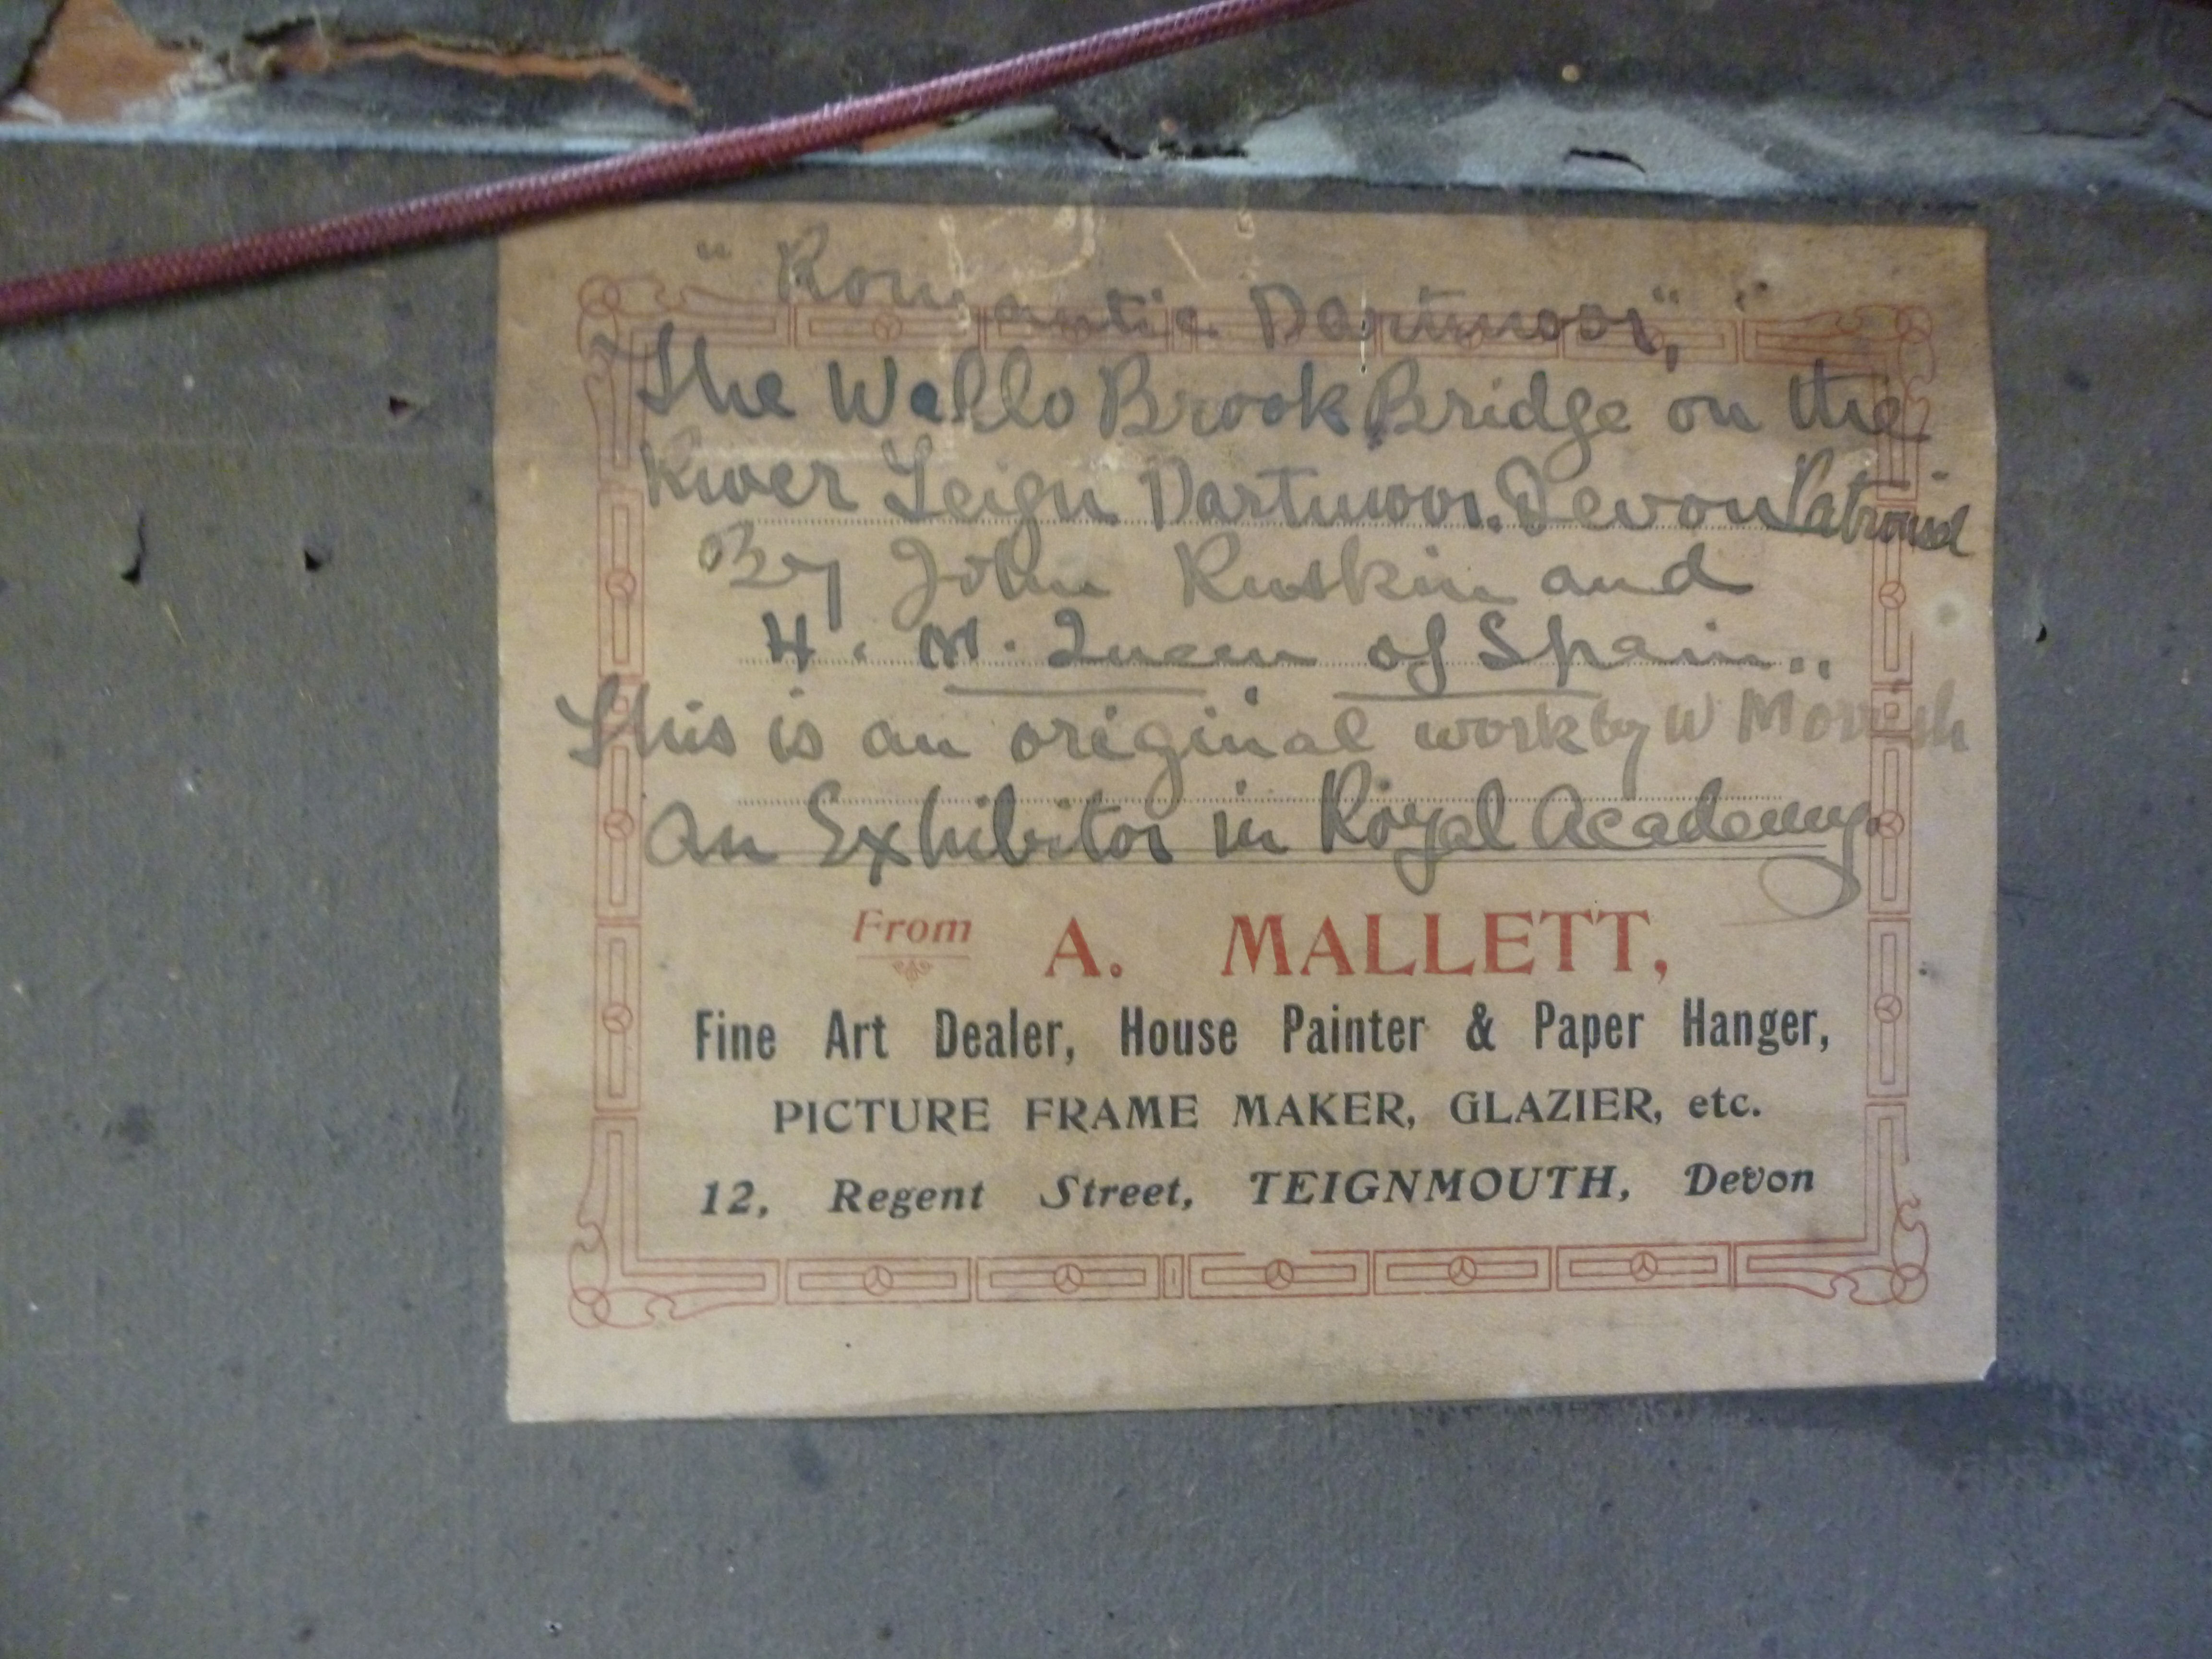 "Romantic Dartmoor,"
The Wallo Brook Bridge on the
River Teign Dartmoor. Devon Patronised
By John Ruskin and
H. M. Queen of Spain."
This is an original work by W Morrish
An Exhibitor in Royal Academy
From A. MALLETT,
Fine Art Dealer, House Painter & Paper Hanger,
PICTURE FRAME MAKER, GLAZIER, etc.
12, Regent Street, TEIGNMOUTH, Devon